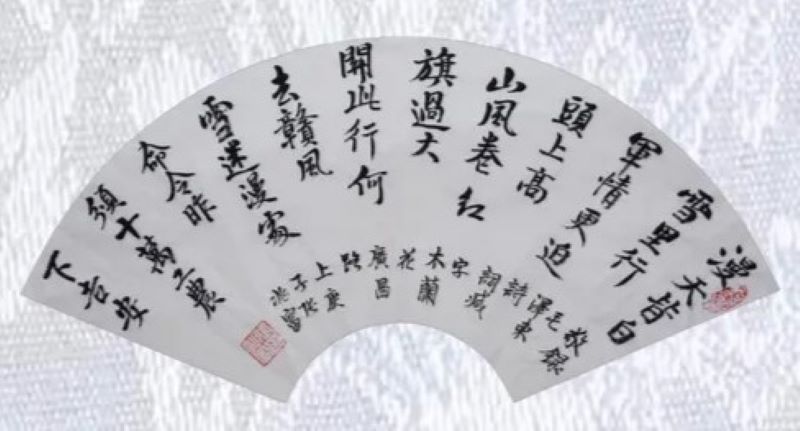 漫天皆白
雪里行
軍情更迫
頭上高
山風卷紅
旗過大
開此行何
去贛風
雪迷漫處
命令昨
頒十萬工農
下吉安
敬録
毛
澤東
詩
詞減
字
木蘭
花
廣昌
路
上庚
子張
洪富